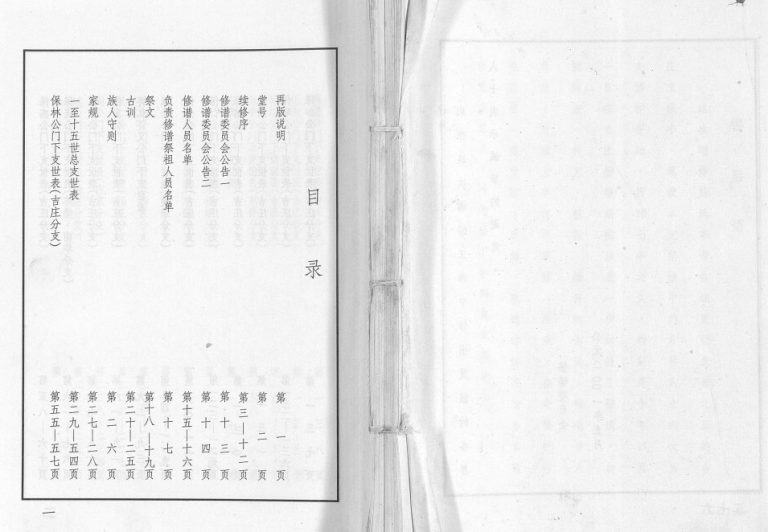 目录
再版说明 第一页
堂号 第二页
续修序 第三—十二页
修谱委员会公告一 第十三页
修谱委员会公告二 第十四页
修谱人员名单 第十五—十六页
负责修谱祭祖人员名单 第十七页
祭文 第十八—十九页
古训 第二十—二五页
族人守则 第二六页
家规 第二七—二八页
一至十五世总支世表 第二九—五四页
保林公门下支世表(吉庄分支) 第五五—五七页
一